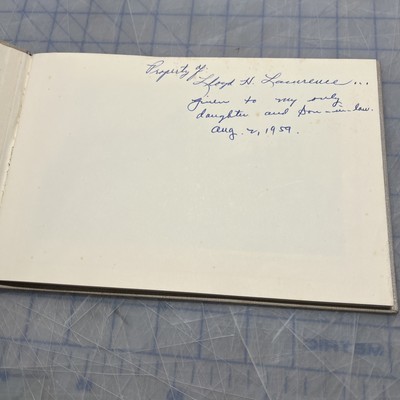 Property of:
Lloyd H. Lawrence...
given to my only
daughter and Son-in-law.
Aug. 2, 1959.
METRIC